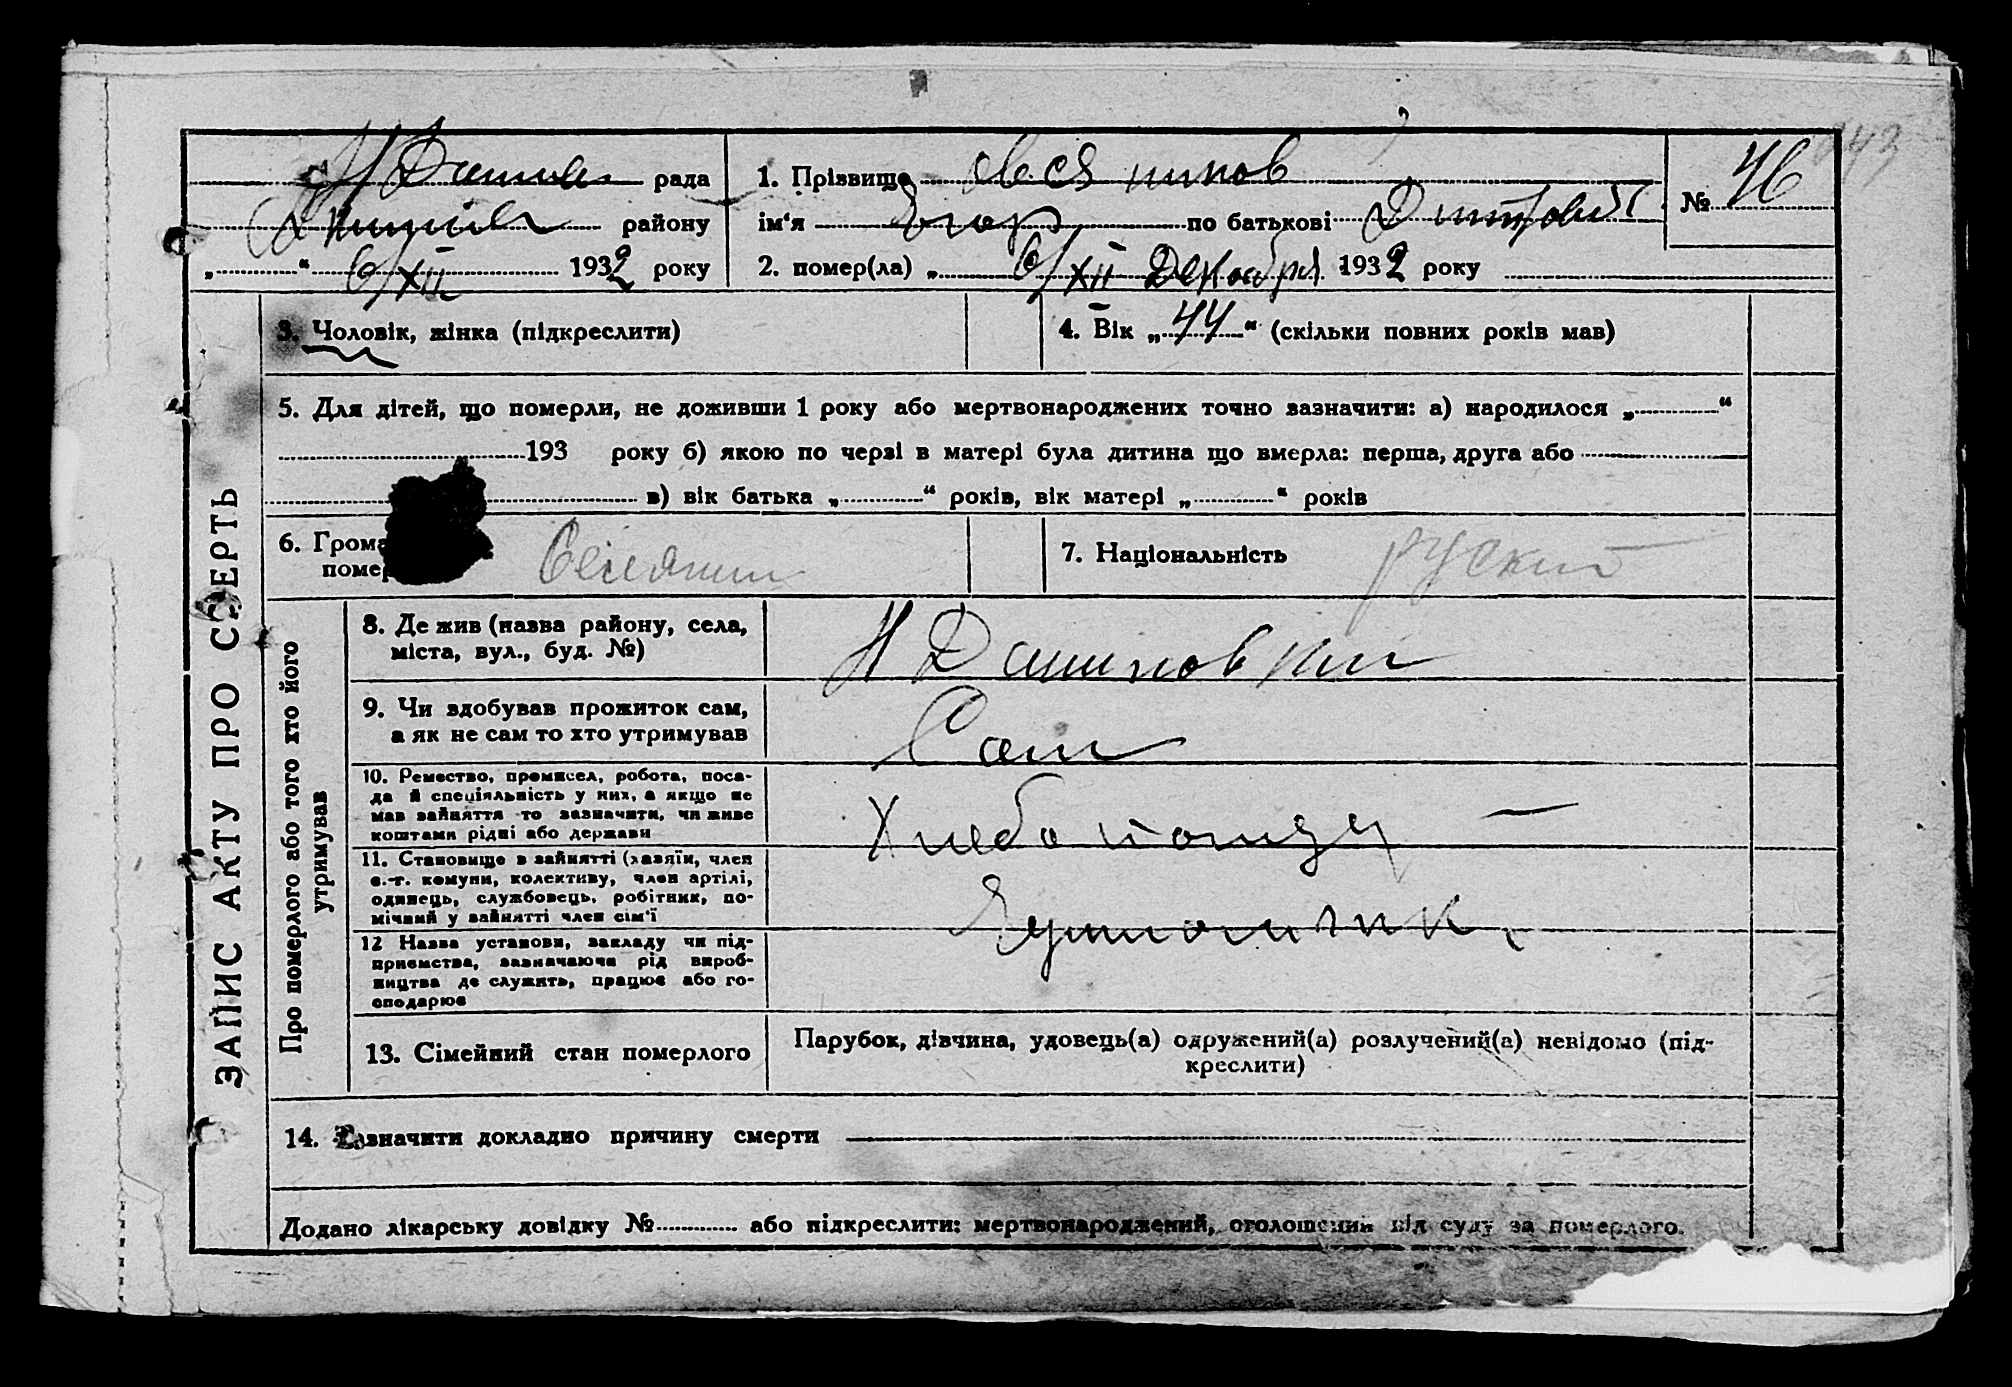 рада
району
6/XII 1932 року
1. Прізвище Овсянников
ім'я Егор по батькові
2. помер(ла) „ 6/XII Декабря 1932 року
№ 46
ЗАПИС АКТУ ПРО СМЕРТЬ
3. Чоловік, жінка (підкреслити)
4. Вік „44“ (скільки повних років мав)
5. Для дітей, що померли, не доживши 1 року або мертвонароджених точно зазначити: а) народилося „ “
193 року б) якою по черзі в матері була дитина що вмерла: перша, друга або
в) вік батька „ “ років, вік матері „ “ років
6. Грома
помер
Селянин
7. Національність руский
Про померлого або того хто його
утримував
8. Де жив (назва району, села,
міста, вул., буд. №)
9. Чи здобував прожиток сам,
а як не сам то хто утримував
Сам
10. Ремество, промисел, робота, поса-
да й спеціяльність у них, а якщо не
мав зайняття то зазначити, чи живе
коштами рідні або держави
11. Становище в зайнятті (хазяїн, член
с.-г. комуни, колективу, член артілі,
одинець, службовець, робітник, по-
мічний у зайнятті член сім'ї
12 Назва установи, закладу чи під-
приємства, зазначаючи рід вироб-
ництва де служить, працює або го-
сподарює
13. Сімейний стан померлого
Парубок, дівчина, удовець(а) одружений(а) розлучений(а) невідомо (під-
креслити)
14. Зазначити докладно причину смерти
Додано лікарську довідку № або підкреслити: мертвонароджений, оголошений від суду за померлого.